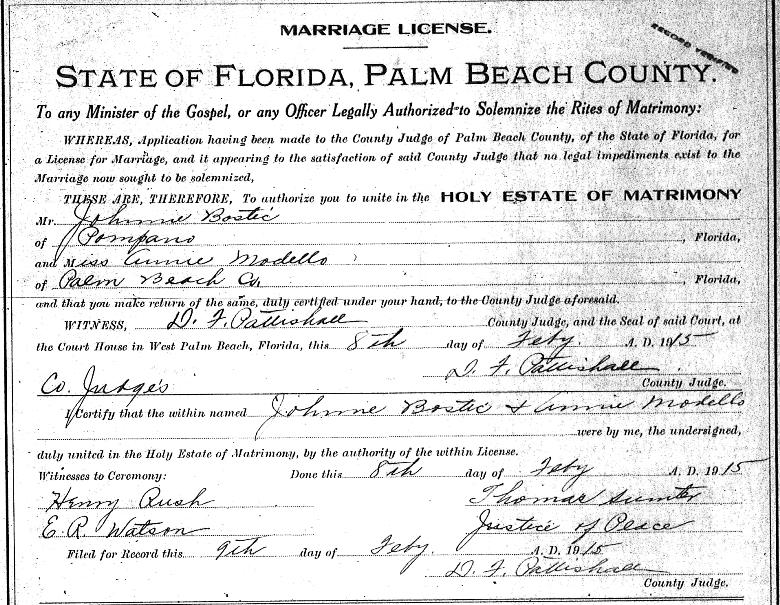 MARRIAGE LICENSE.
RECORD VERIFIED
STATE OF FLORIDA, PALM BEACH COUNTY.
To any Minister of the Gospel, or any Officer Legally Authorized to Solemnize the Rites of Matrimony:
WHEREAS, Application having been made to the County Judge of Palm Beach County, of the State of Florida, for
a License for Marriage, and it appearing to the satisfaction of said County Judge that no legal impediments exist to the
Marriage now sought to be solemnized,
THESE ARE, THEREFORE, To authorize you to unite in the HOLY ESTATE OF MATRIMONY
Mr. Johnnie Bostic
of Pompano, Florida,
and Miss Annie Modello
of Palm Beach Co, Florida,
and that you make return of the same, duly certified under your hand, to the County Judge aforesaid.
WITNESS, D. F. Pattishall County Judge, and the Seal of said Court, at
the Court House in West Palm Beach, Florida, this 8th day of Feby. A. D. 1915
D. F. Pattishall
Co. Judges County Judge.
I Certify that the within named Johnnie Bostic & Annie Modello
were by me, the undersigned,
duly united in the Holy Estate of Matrimony, by the authority of the within License.
Witnesses to Ceremony: Done this 8th day of Feby A. D. 1915
Henry Rush Thomas Sumter
E. R. Watson Justice of Peace
Filed for Record this 9th day of Feby. A. D. 1915
D. F. Pattishall
County Judge.